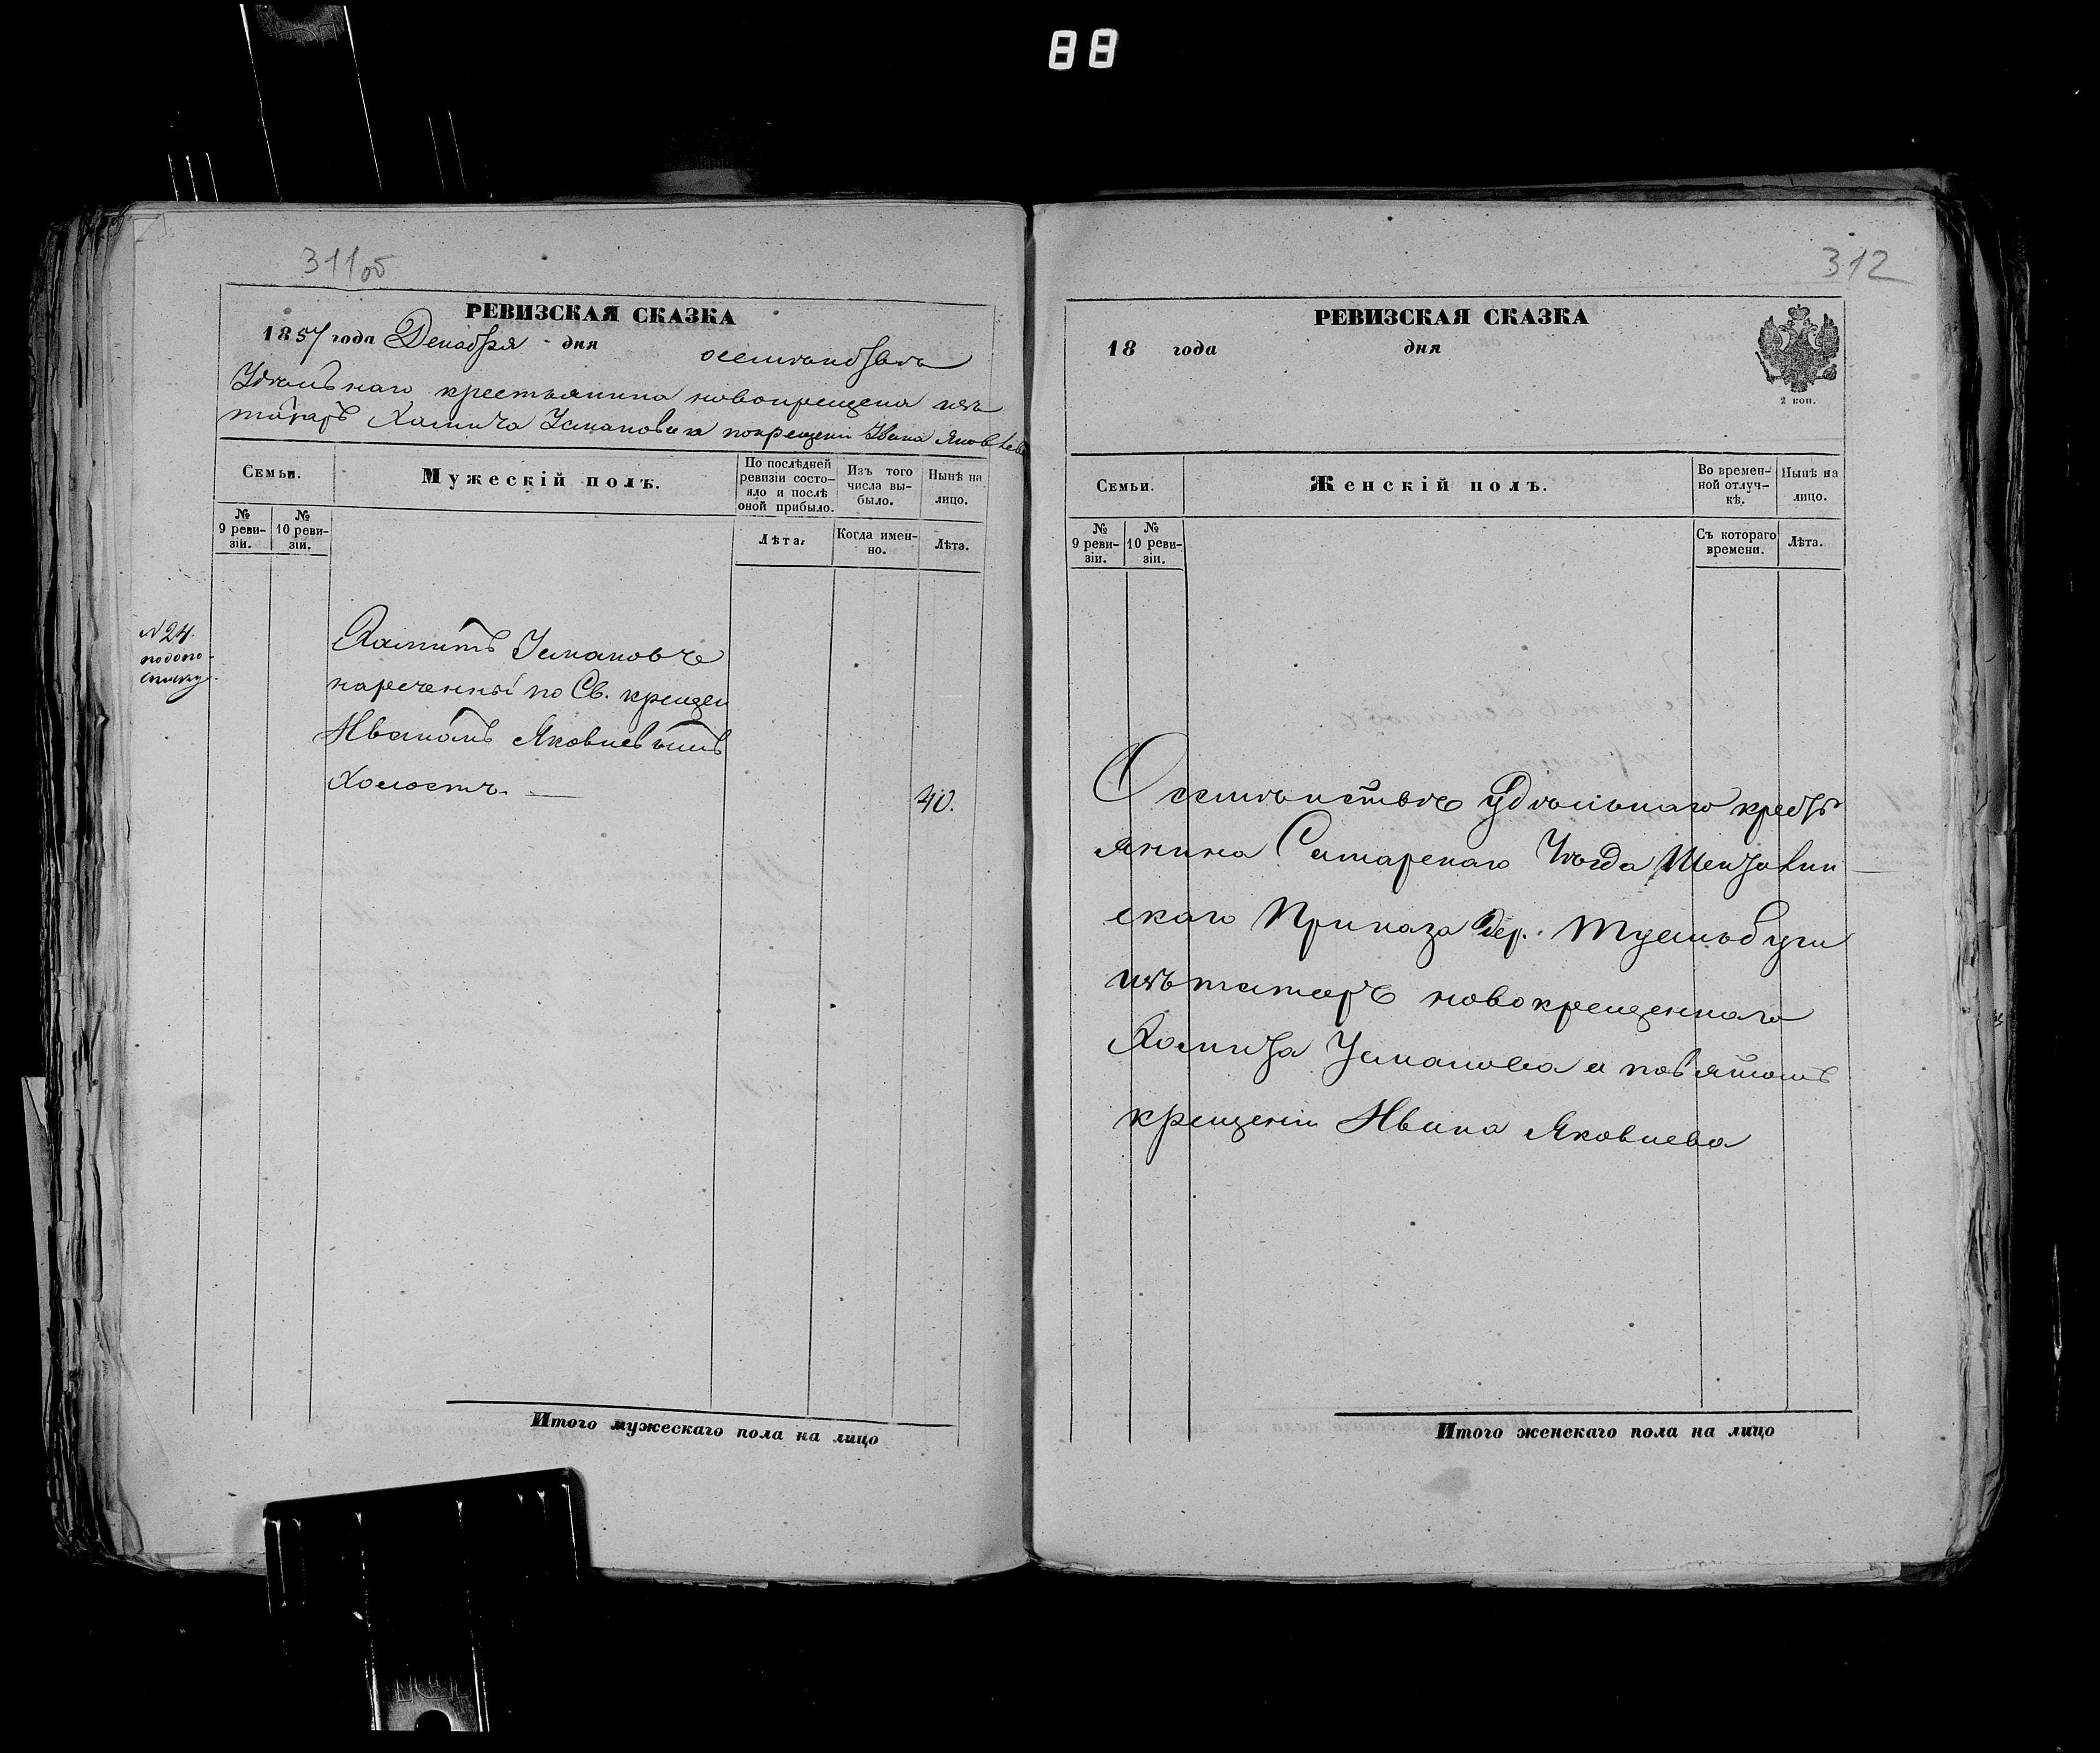 88
311об
РЕВИЗСКАЯ СКАЗКА
1857 года Декабря дня
о семѣйствѣ
Удѣльнаго крестьянина новокрещена изъ
татаръ Хамита Усманова а по крещеніи Ивана Яковлева
Семьи.
Мужескій полъ.
По послѣдней ревизіи состояло и послѣ оной прибыло.
Изъ того числа выбыло.
Нынѣ на лицо.
№ 9 ревизіи.
№ 10 ревизіи.
Лѣта.
Когда именно.
Лѣта.
№ 24.
Хамитъ Усмановъ
нареченный по Св. крещен
Иваномъ Яковлевымъ
Холостъ.
40.
Итого мужескаго пола на лицо
312
РЕВИЗСКАЯ СКАЗКА
18 года дня
2 коп.
Семьи.
Женскій полъ.
Во временной отлучкѣ.
Нынѣ на лицо.
№ 9 ревизіи.
№ 10 ревизіи.
Съ котораго времени.
Лѣта.
О семѣйствѣ удѣльнаго кресть
янина Самарскаго Уѣзда Шенталин
скаго Приказа дер.
изъ татаръ новокрещеннаго
Хамита Усманова а по святомъ
крещеніи Ивана Яковлева
Итого женскаго пола на лицо